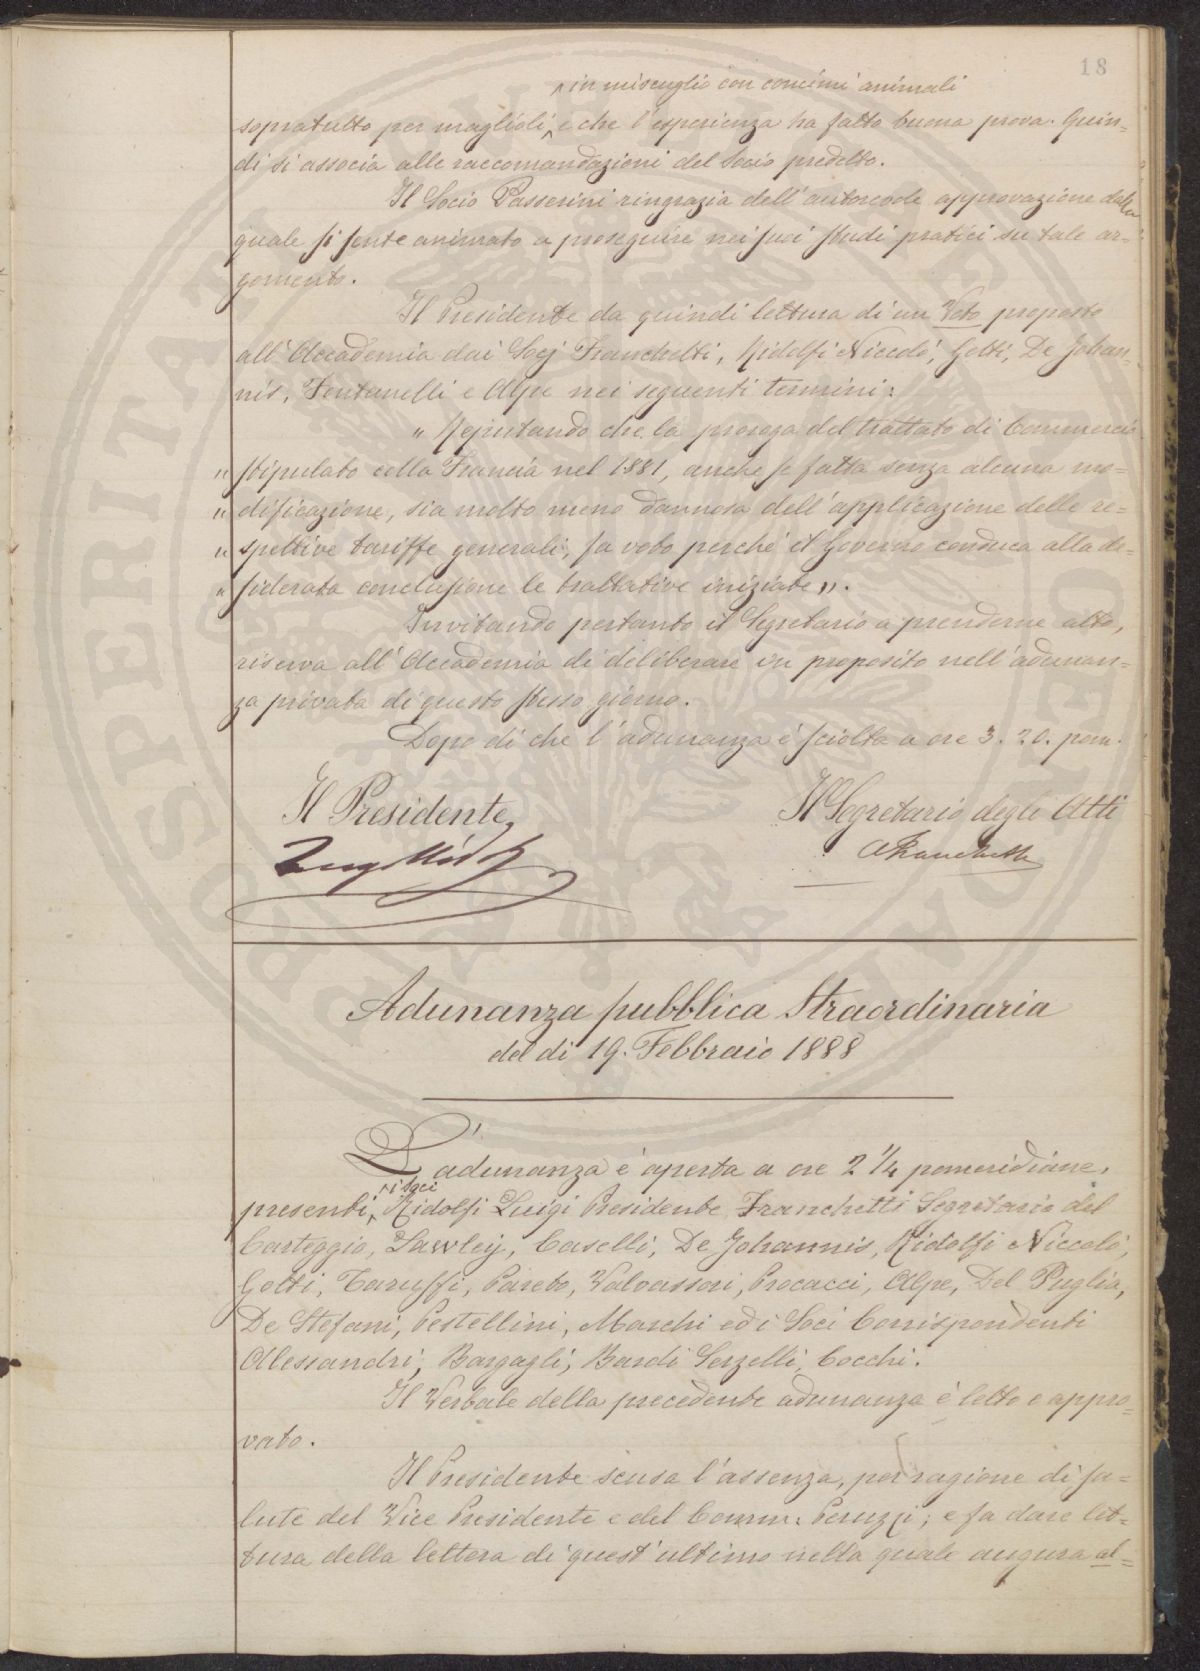 18
in miscuglio con concimi animali
sopratutto per maglioli, e che l'esperienza ha fatto buona prova. Quin-
di si associa alle raccomandazioni del Socio predetto.
Il Socio Passerini ringrazia dell'autorevole approvazione dalla
quale si sente animato a proseguire nei suoi studi pratici su tale ar-
gomento.
Il Presidente da quindi lettura di un Voto proposto
all'Accademia dai Socj Franchetti, Ridolfi Niccolò, Gotti, De Johan-
nis, Fontanelli e Alpe nei seguenti termini:
" Reputando che la proroga del trattato di Commercio
" stipulato colla Francia nel 1881, anche se fatta senza alcuna mo-
" dificazione, sia molto meno dannosa dell'applicazione delle re-
" spettive tariffe generali, fa voto perché il Governo conduca alla de-
" siderata conclusione le trattative iniziate ".
Invitando pertanto il Segretario a prenderne atto,
riserva all'Accademia di deliberare in proposito nell'adunan-
za privata di questo stesso giorno.
Dopo di che l'adunanza è sciolta a ore 3. 20. pom.
Il Presidente Il Segretario degli Atti
AFranchetti
Adunanza pubblica Straordinaria
del dì 19. Febbraio 1888
L'adunanza è aperta a ore 2 1/4 pomeridiane,
i Soci
presenti, Ridolfi Luigi Presidente Franchetti Segretario del
Carteggio, Lawley, Caselli, De Johannis, Ridolfi Niccolò,
Gotti, Taruffi, Pareto, Valvassori, Procacci, Alpe, Del Puglia,
De Stefani, Pestellini, Marchi ed i Soci Corrispondenti
Alessandri, Bargagli, Bardi Serzelli, Cocchi.
Il Verbale della precedente adunanza è letto e appro-
vato.
Il Presidente scusa l'assenza, per ragione di sa-
lute del Vice Presidente e del Comm: Peruzzi; e fa dare let-
tura della lettera di quest'ultimo nella quale augura al-
PROSPERITATI PUBLICAE AUGENDAE